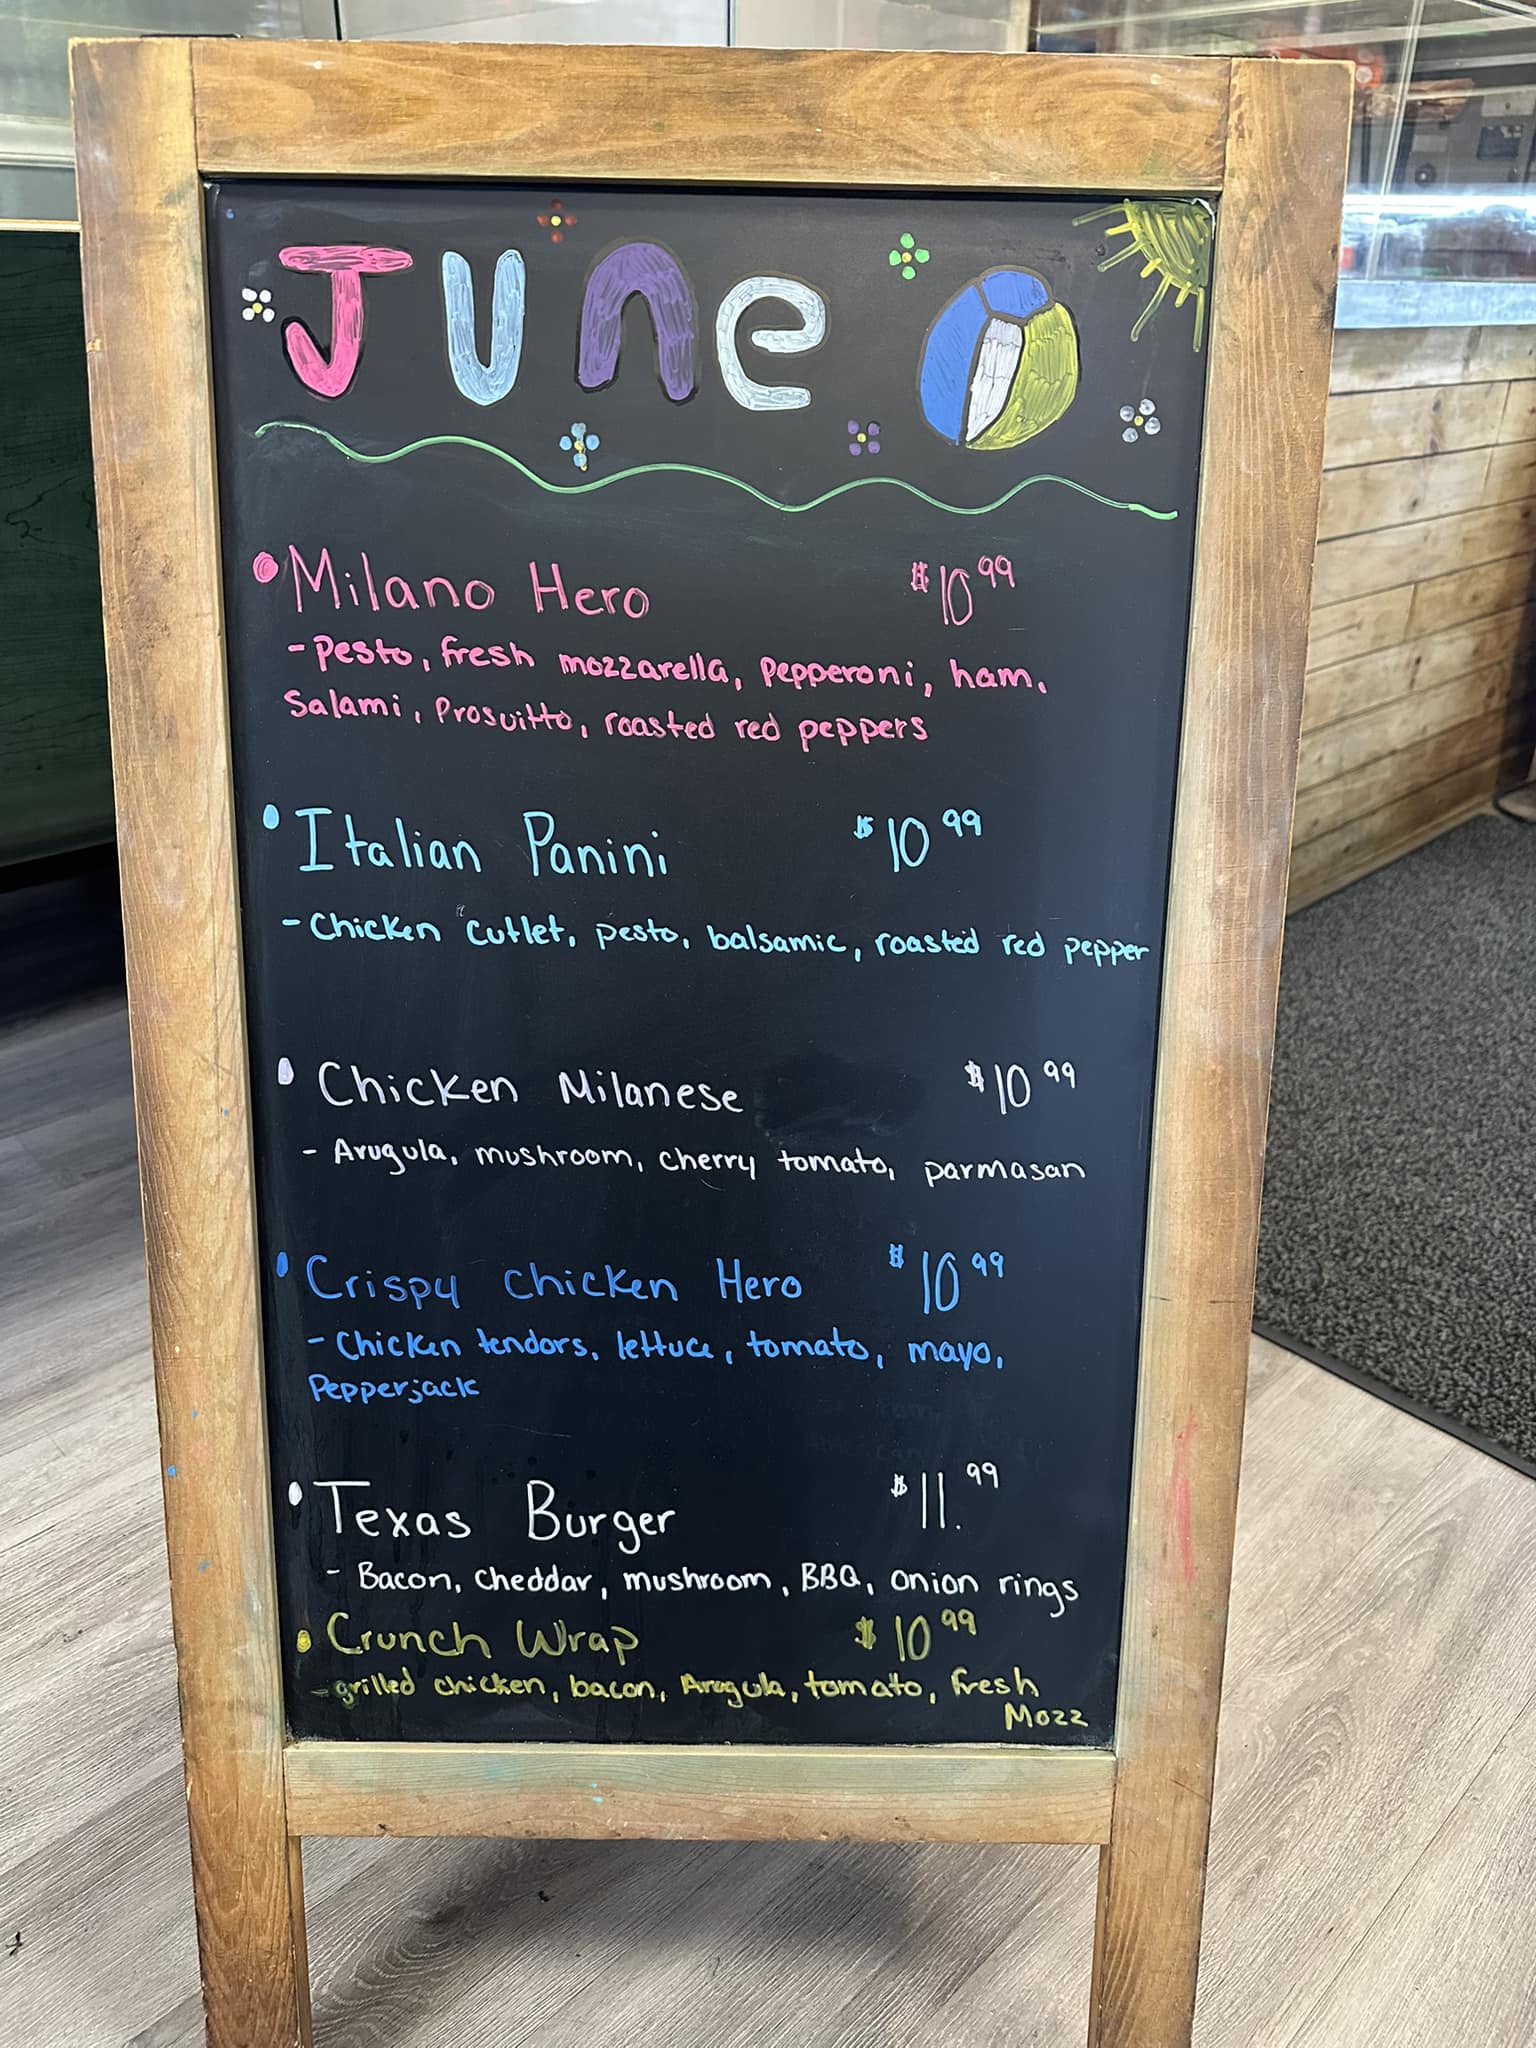 June
Milano Hero $10.99
- Pesto, fresh mozzarella, pepperoni, ham,
Salami, Prosuitto, roasted red peppers
Italian Panini $10.99
- Chicken cutlet, pesto, balsamic, roasted red pepper
Chicken Milanese $10.99
- Arugula, mushroom, cherry tomato, parmasan
Crispy Chicken Hero $10.99
- Chicken tendors, lettuce, tomato, mayo,
Pepperjack
Texas Burger $11.99
- Bacon, cheddar, mushroom, BBQ, onion rings
Crunch Wrap $10.99
- grilled chicken, bacon, Arugula, tomato, Fresh
Mozz